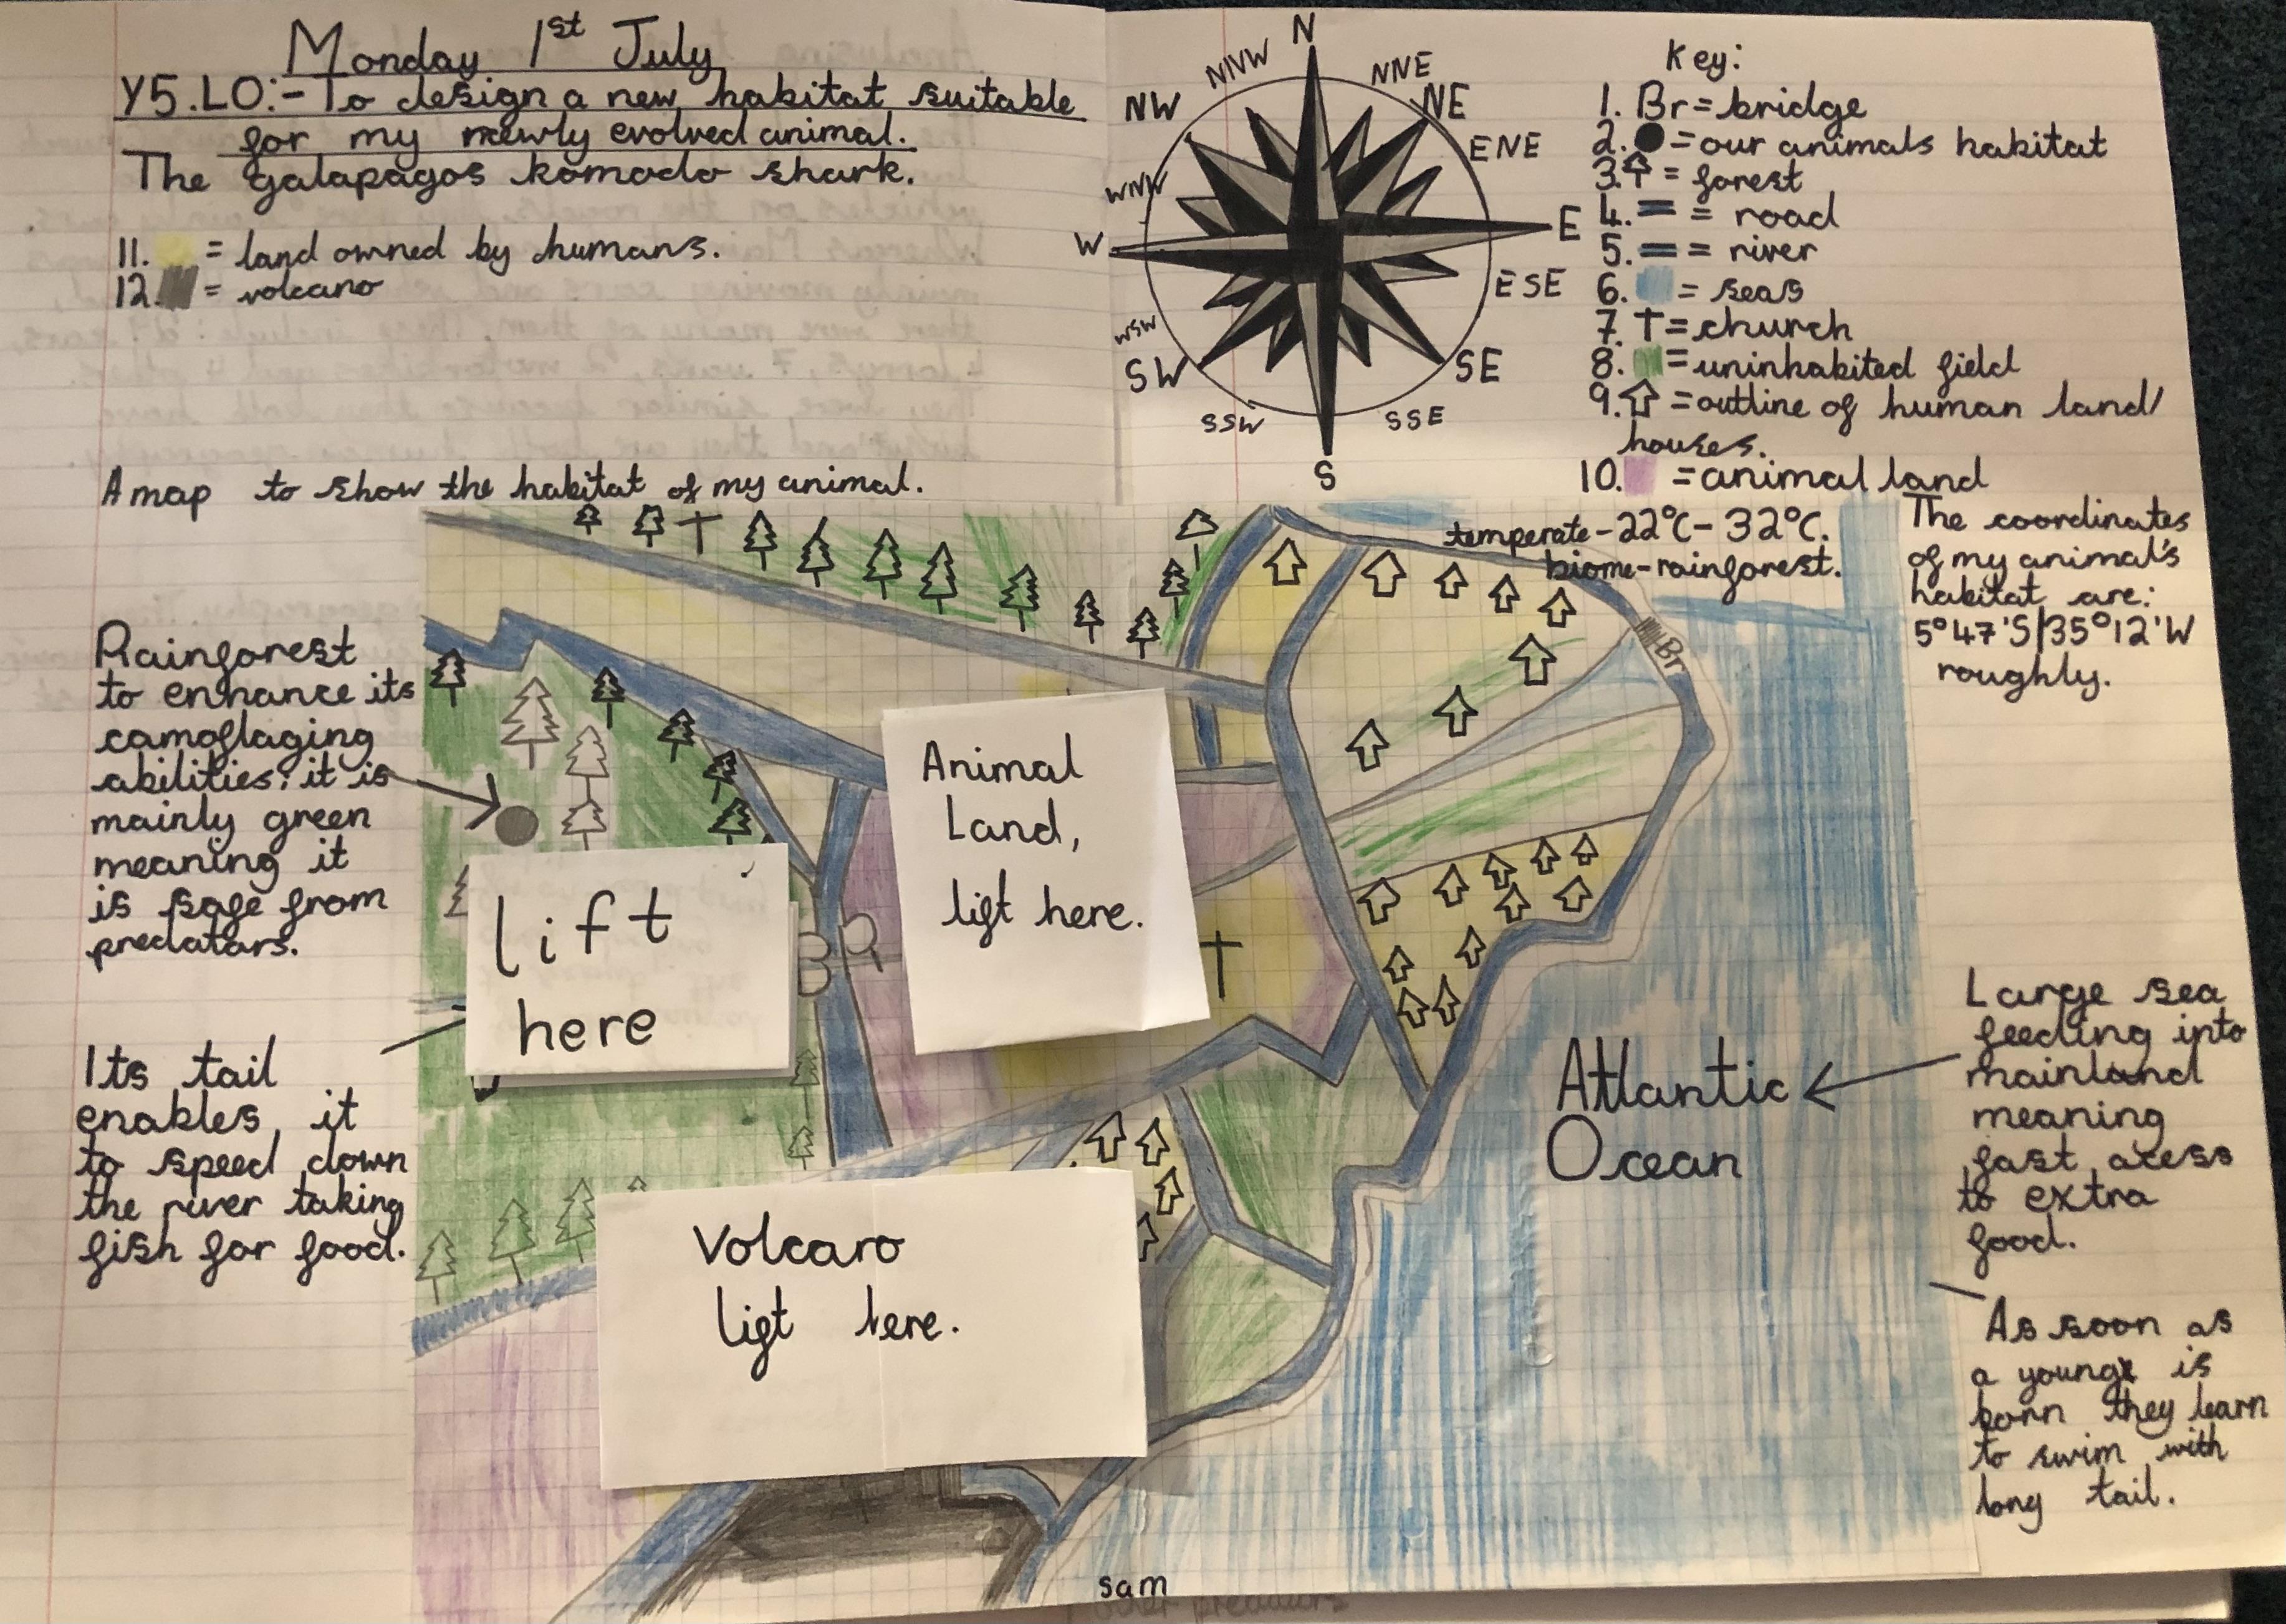 Monday 1st July
Y5.LO:-To design a new habitat suitable
for my newly evolved animal.
The galapagos komodo shark.
11. = land owned by humans.
12. = volcano
A map to show the habitat of my animal.
N
NNW
NNE
NW
NE
ENE
WNW
W
E
ESE
WSW
SW
SE
SSW
SSE
S
Key:
1. Br=bridge
2. =our animals habitat
3. = forest
4. = road
5. = river
6. = seas
7. =church
8. =uninhabited field
9. =outline of human land/
houses.
10. =animal land
temperate-22°C-32°C.
biome-rainforest.
The coordinates
of my animal's
habitat are:
5°47'S/35°12'W
roughly.
Br
Rainforest
to enhance its
camoflaging
abilities: it is
mainly green
meaning it
is safe from
predators.
Animal
Land,
lift here.
lift
here
Its tail
enables it
to speed down
the river taking
fish for food.
Volcano
lift here.
Atlantic
Ocean
Large sea
feeding into
mainland
meaning
fast acess
to extra
food.
As soon as
a young is
born they learn
to swim with
long tail.
sam